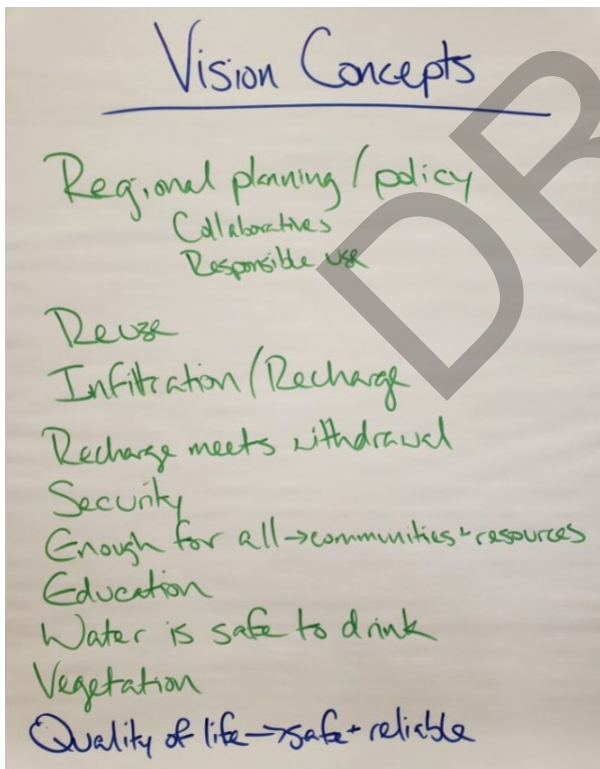 Vision Concepts
Regional planning / policy
Collaboratives
Responsible use
Reuse
Infiltration / Recharge
Recharge meets withdrawal
Security
Enough for all → communities + resources
Education
Water is safe to drink
Vegetation
Quality of life → safe + reliable
DR